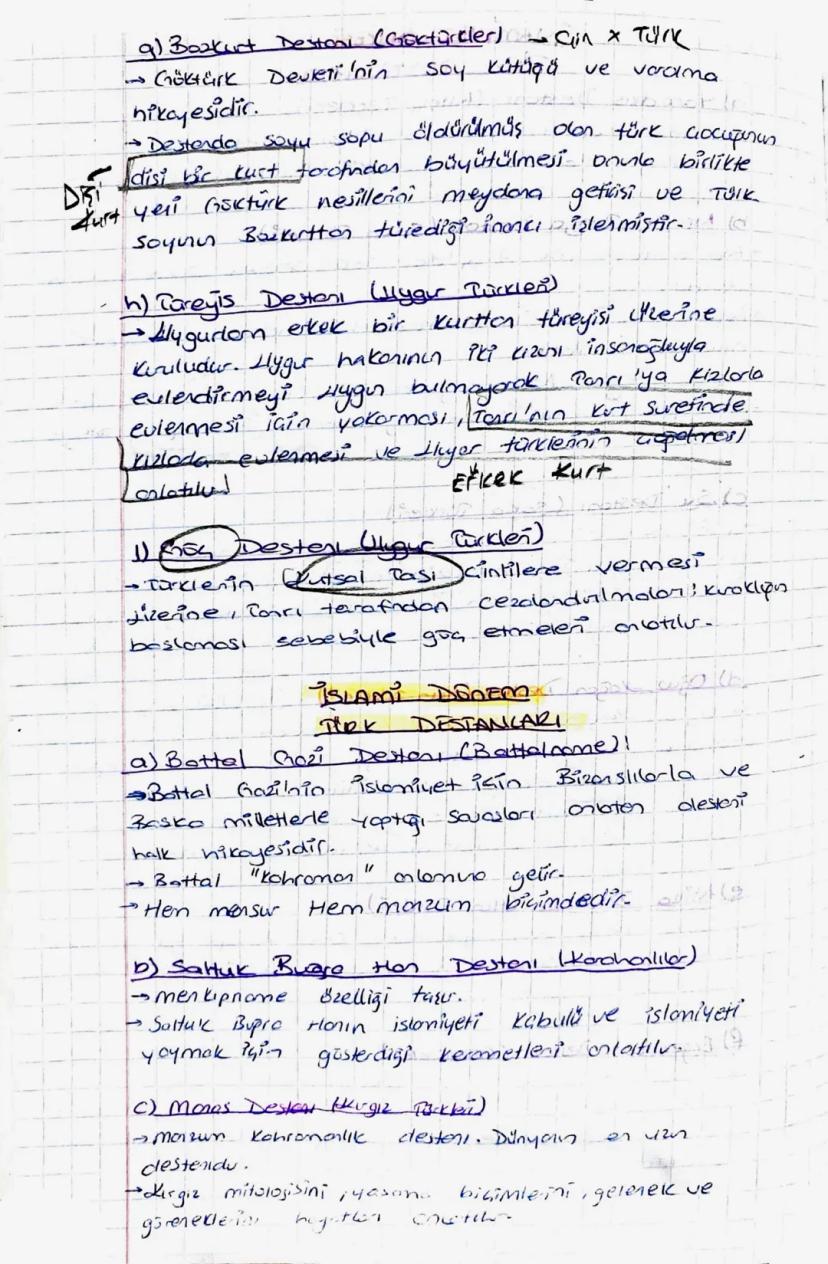 g) Bozkurt Destanı (Göktürkler) → Çin x Türk
→ Göktürk Devleti'nin soy kütüğü ve varolma
hikayesidir.
→ Destanda soyu sopu öldürülmüş olan türk çocuğunun
dişi bir kurt tarafından büyütülmesi onunla birlikte
Dişi Kurt
yeni Göktürk nesillerini meydana getirişi ve Türk
soyunun Bozkurttan türediği inancı işlenmiştir.
h) Türeyiş Destanı (Uygur Türkleri)
→ Uygurların erkek bir kurttan türeyişi üzerine
kuruludur. Uygur hakanının iki kızını insanoğluyla
evlendirmeyi uygun bulmayarak Tanrı'ya kızlarla
evlenmesi için yakarması, Tanrı'nın kurt suretinde
kızlarla evlenmesi ve Uygur türklerinin çoğalması
anlatılır.
Erkek Kurt
ı) Göç Destanı (Uygur Türkleri)
→ Türklerin Kutsal Taşı Çinlilere vermesi
üzerine, Tanrı tarafından cezalandırılmaları; kıraklığın
başlaması sebebiyle göç etmeleri anlatılır.
İSLAMİ DÖNEM
TÜRK DESTANLARI
a) Battal Gazi Destanı (Battalname):
→ Battal Gazi'nin İslamiyet için Bizanslılarla ve
Başka milletlerle yaptığı savaşları anlatan destani
halk hikayesidir.
→ Battal "kahraman" anlamına gelir.
→ Hem mensur Hem manzum biçimdedir.
b) Saltuk Buğra Han Destanı (Karahanlılar)
→ menkıpname özelliği taşır.
→ Saltuk Buğra Hanın islamiyeti kabulü ve islamiyeti
yaymak için gösterdiği kerametleri anlatılır.
c) Manas Destanı (Kırgız Türkleri)
→ manzum kahramanlık destanı. Dünyanın en uzun
destanıdır.
→ Kırgız mitolojisini, yaşama biçimlerini, gelenek ve
göreneklerini hayatları anlatılır.